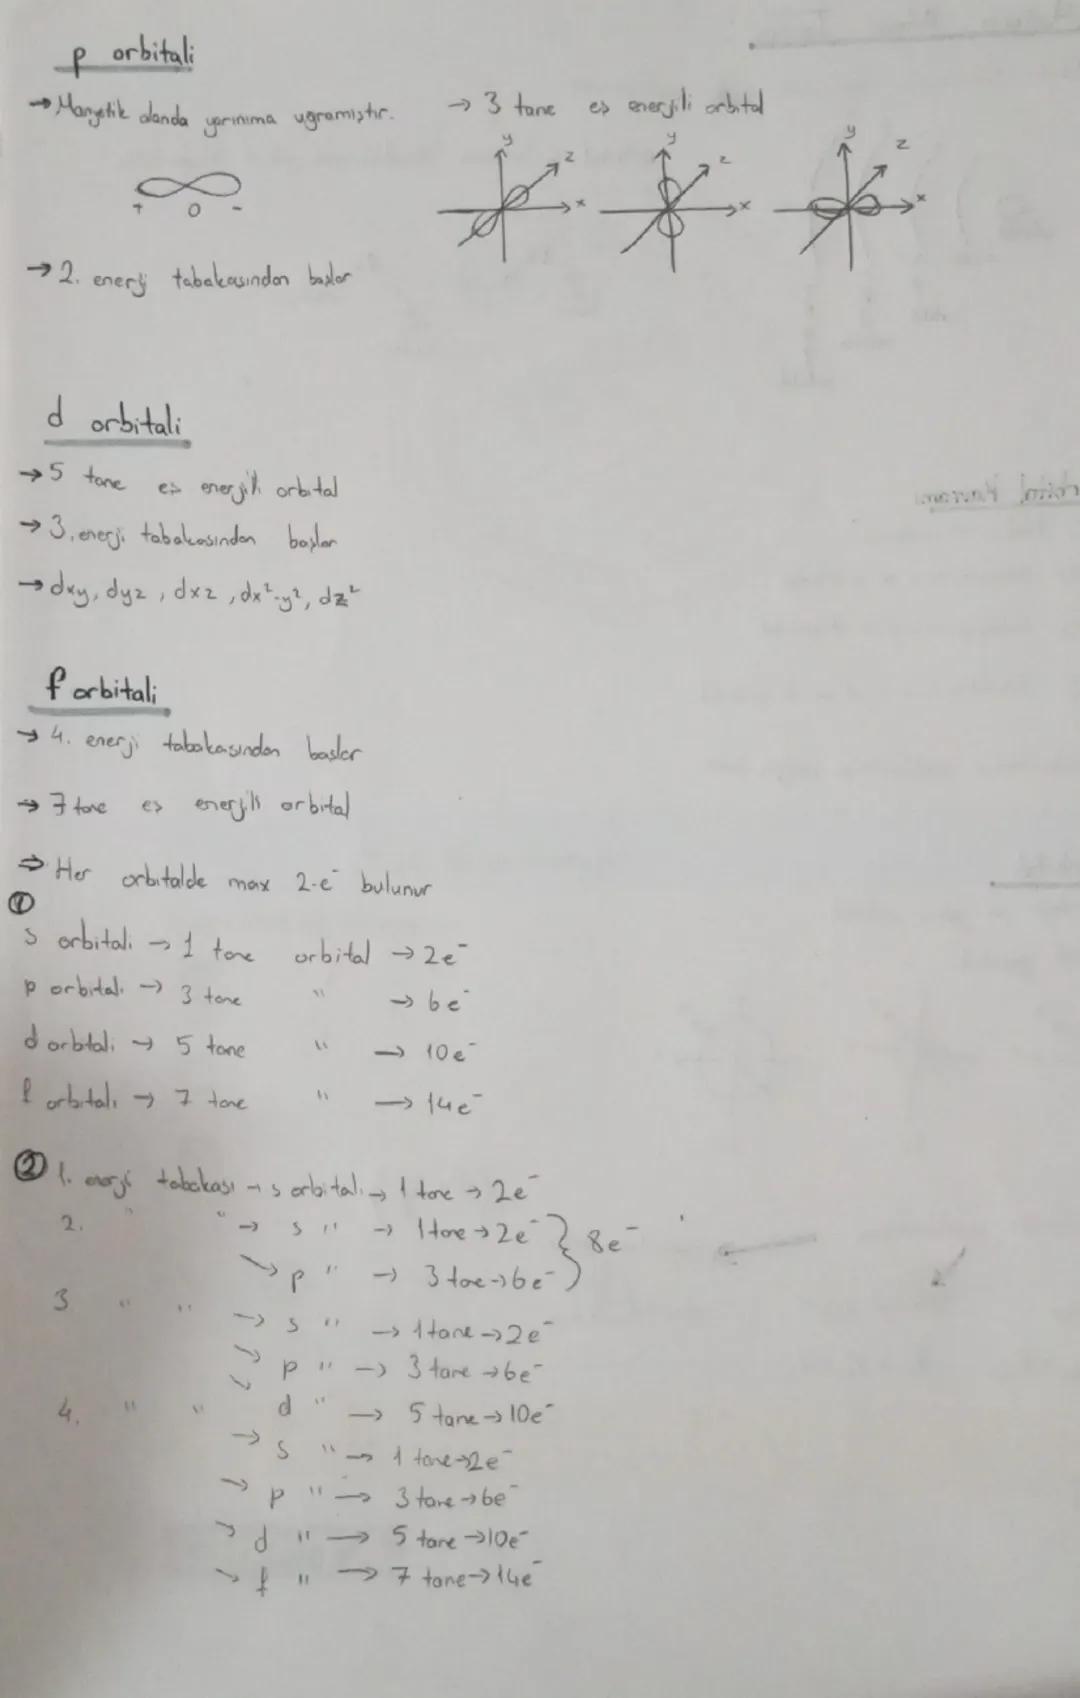 p orbitali
→ Manyetik alanda yarınıma uğramıştır.
+ 0 -
→ 2. enerji tabakasından başlar
→ 3 tane eş enerjili orbital
y z x
y z x
y z x
d orbitali
→ 5 tane eş enerjili orbital
→ 3. enerji tabakasından başlar
→ dxy, dyz, dxz, dx²-y², dz²
f orbitali
→ 4. enerji tabakasından başlar
→ 7 tane eş enerjili orbital
⇒ Her orbitalde max 2e⁻ bulunur
①
s orbitali → 1 tane orbital → 2e⁻
p orbitali → 3 tane " → 6e⁻
d orbitali → 5 tane " → 10e⁻
f orbitali → 7 tane " → 14e⁻
② 1. enerji tabakası → s orbitali → 1 tane → 2e⁻
2. " " → s " → 1 tane → 2e⁻ } 8e⁻
→ p " → 3 tane → 6e⁻
3 " " → s " → 1 tane → 2e⁻
→ p " → 3 tane → 6e⁻
→ d " → 5 tane → 10e⁻
4. " " → s " → 1 tane → 2e⁻
→ p " → 3 tane → 6e⁻
→ d " → 5 tane → 10e⁻
→ f " → 7 tane → 14e⁻